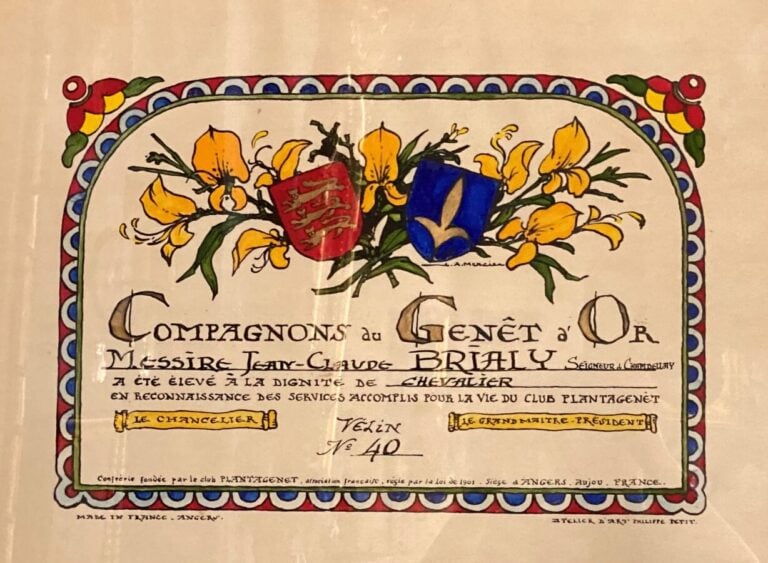 L.A. MERCIER
COMPAGNONS du GENÊT d'OR
MESSIRE JEAN-CLAUDE BRIALY SEIGNEUR de CHAMBELLAY
A ÉTÉ ÉLEVÉ À LA DIGNITÉ DE CHEVALIER
EN RECONNAISSANCE DES SERVICES ACCOMPLIS POUR LA VIE DU CLUB PLANTAGENÊT
LE CHANCELIER
LE GRAND MAITRE-PRÉSIDENT
VÉLIN
No 40
Confrérie fondée par le club PLANTAGENET, association française, régie par la loi de 1901. Siège à ANGERS. Anjou. FRANCE.
MADE IN FRANCE. ANGERS.
ATELIER D'ART PHILIPPE PETIT.